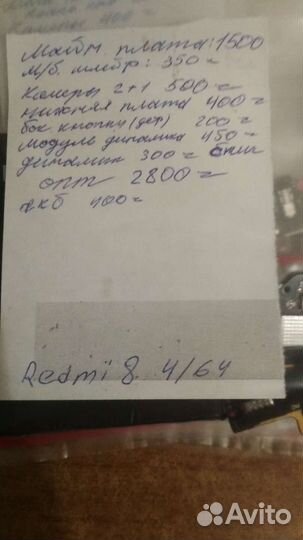 Камеры 400 =
Матер. плата: 1500
м/б. шлейф: 350 =
Камеры 2+1 500 =
нижняя плата 400 =
бок кнопки (деф) 200 =
модуль динамика 450 =
динамик 300 =
опт 2800 =
акб 400 =
Redmi 8 4/64
Avito